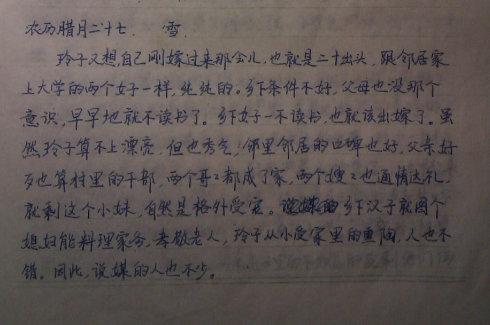 农历腊月二十七. 雪.
玲子又想自己刚嫁过来那会儿,也就是二十出头,跟邻居家
上大学的两个女子一样,纯纯的。乡下条件不好,父母也没那个
意识,早早地就不读书了。乡下女子一不读书,也就该出嫁了。虽
然玲子算不上漂亮,但也秀气,邻里邻居的口碑也好,父亲好
歹也算村里的干部,两个哥哥都成了家,两个嫂嫂也通情达礼,
就剩这个小妹,自然是格外受宠。乡下汉子就图个
媳妇能料理家务,孝敬老人,玲子从小受家里的熏陶,人也不
错。因此,说媒的人也不少。